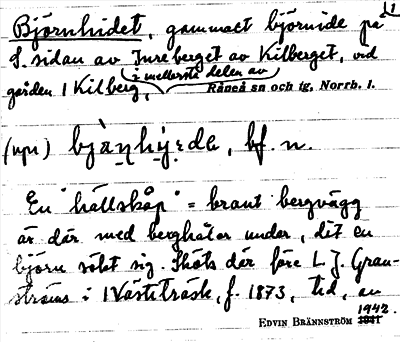 Björnhidet, gammalt björnide på
S. sidan av Inreberget av Kilberget, vid
i mellersta delen av
gården 1 Kilberg,
Råneå sn och tg, Norrb. l.
(upi) bjànhý:da, bf. n.
En "hällskåp" = brant bergvägg
är där med berghålor under, dit en
björn sökt sig. Sköts där före L. J. Gran-
ströms i 1 Västiträsk, f. 1873, tid, an
1942.
EDVIN BRÄNNSTRÖM 1941